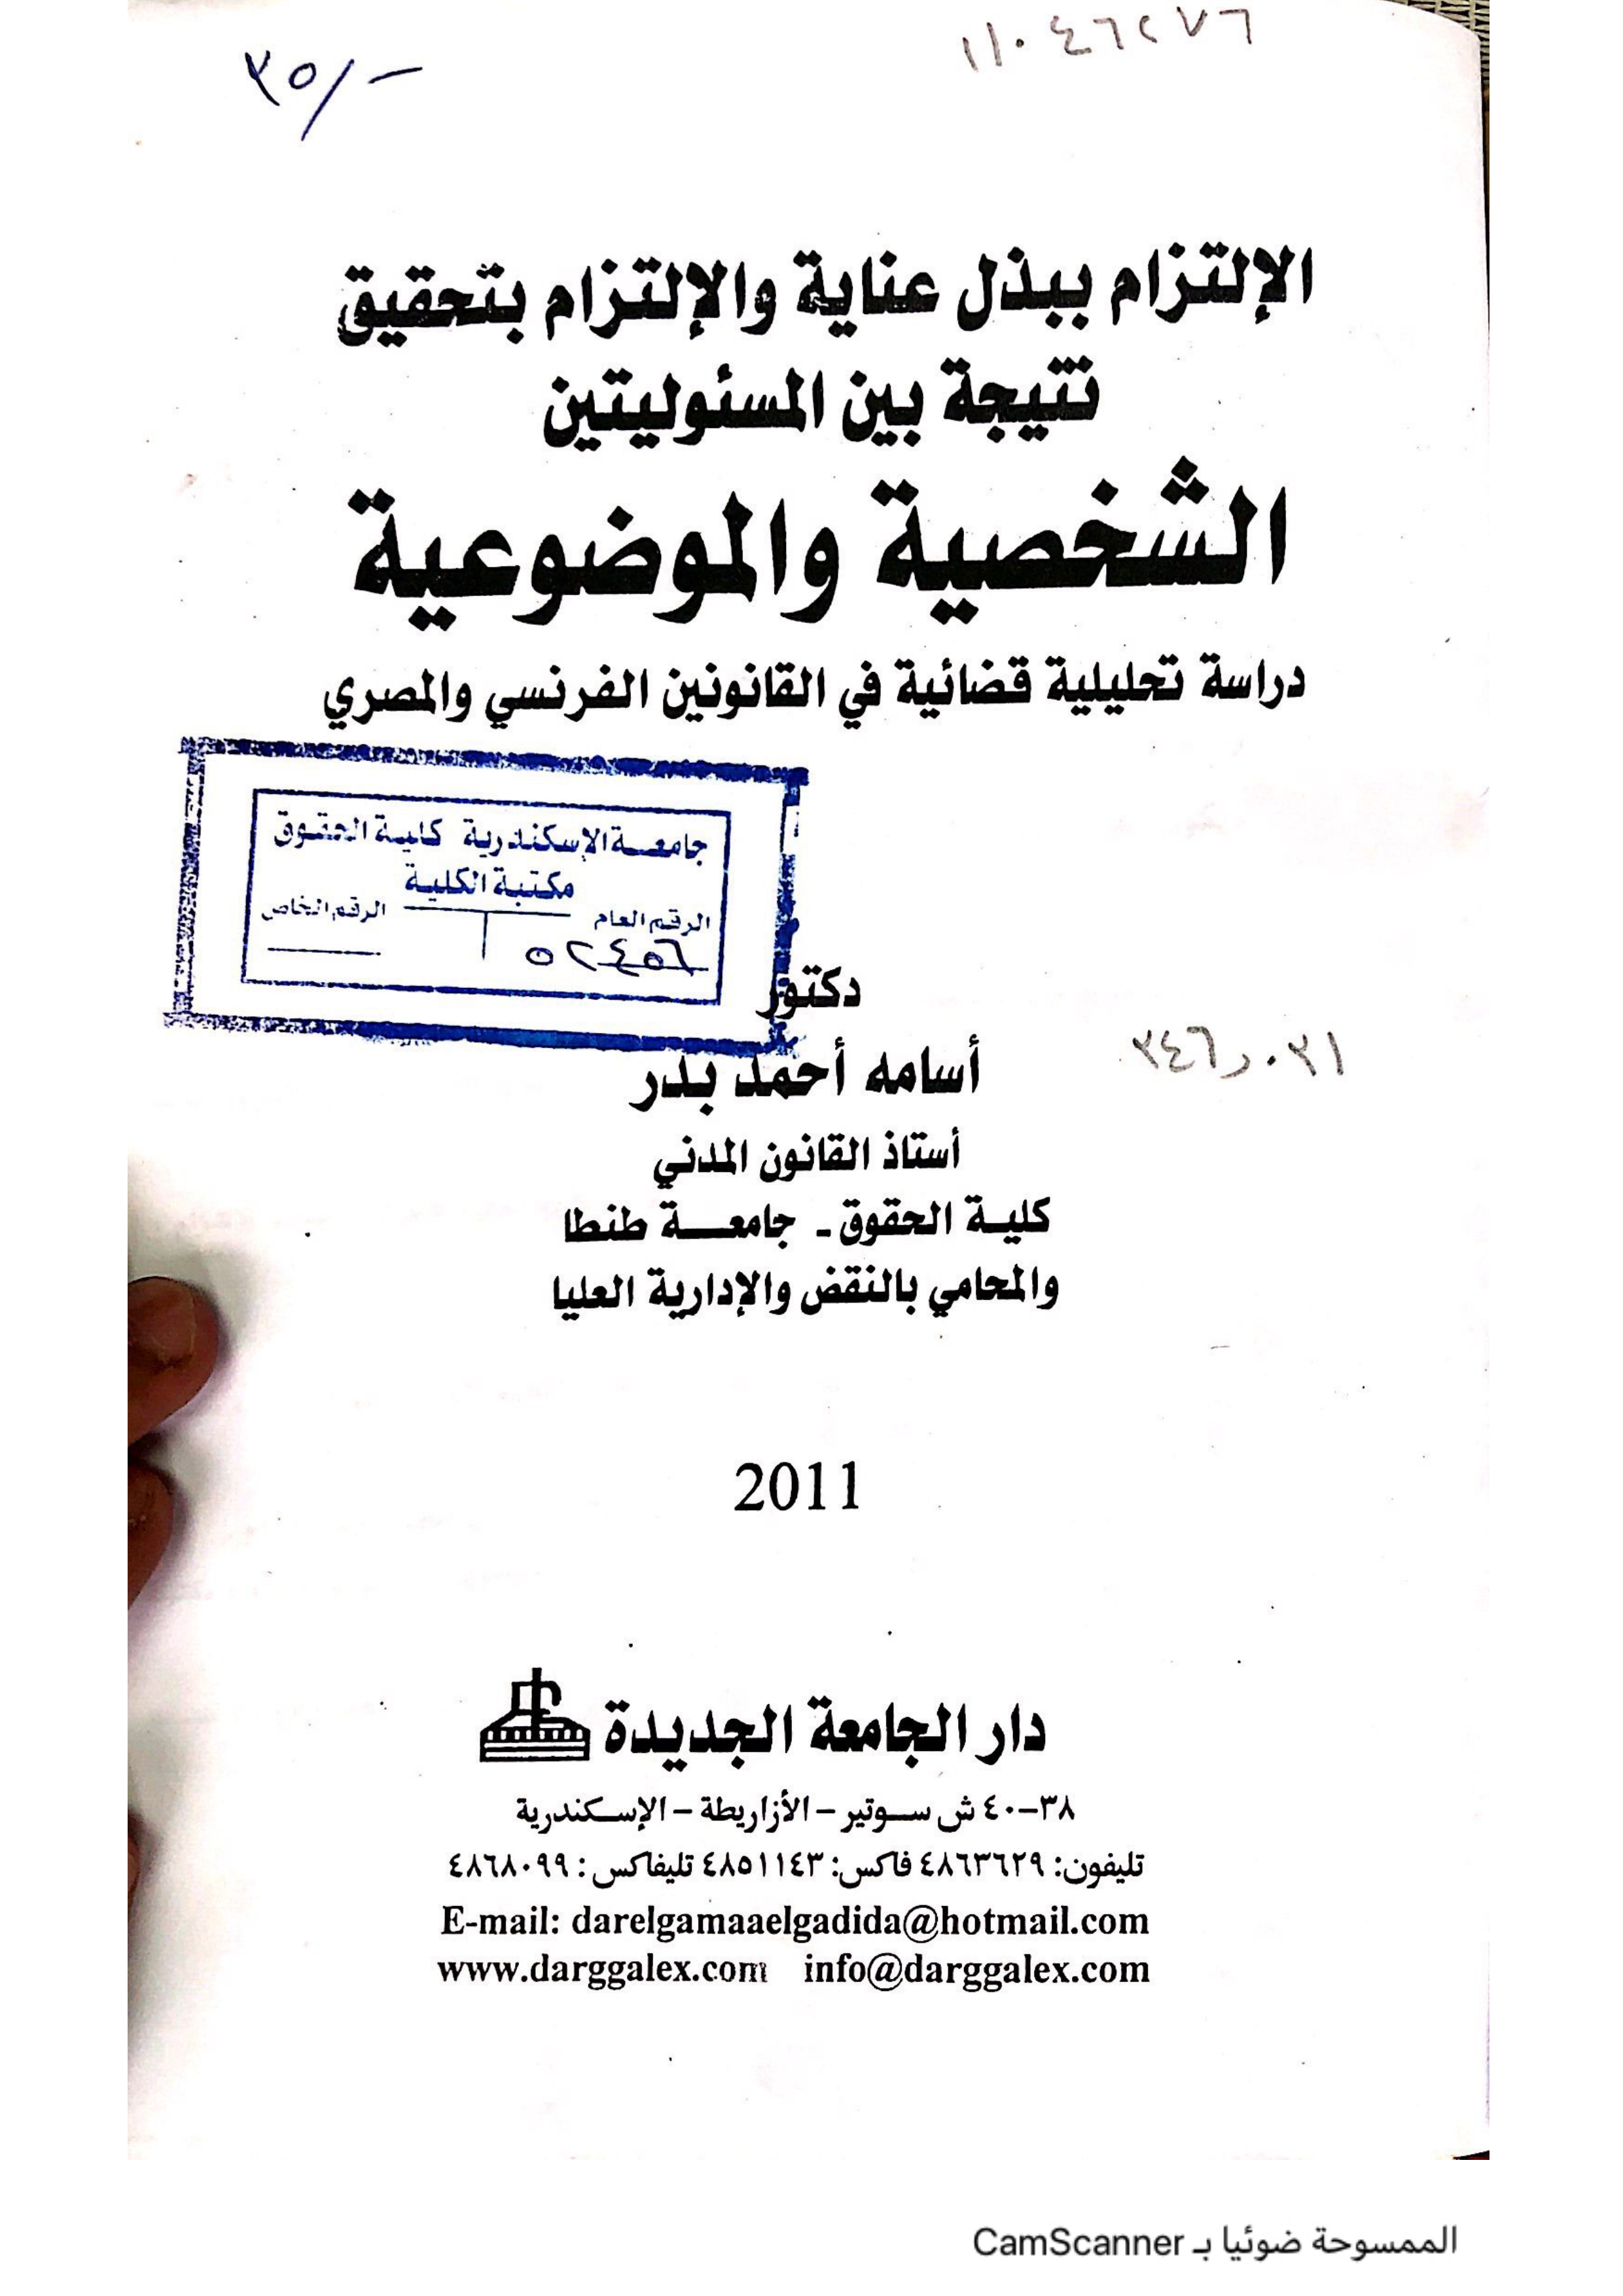 ١١٠٤٦٢٧٦
٣٥/-
الإلتزام ببذل عناية والإلتزام بتحقيق
نتيجة بين المسئوليتين
الشخصية والموضوعية
دراسة تحليلية قضائية في القانونين الفرنسي والمصري
جامعة الإسكندرية كلية الحقوق
مكتبة الكلية
الرقم العام الرقم الخاص
٥٢٤٥٦
دكتور
أسامه أحمد بدر
٣٤٦٫٠٣١
أستاذ القانون المدني
كلية الحقوق - جامعة طنطا
والمحامي بالنقض والإدارية العليا
2011
دار الجامعة الجديدة
٣٨-٤٠ ش سوتير - الأزاريطة - الإسكندرية
تليفون: ٤٨٦٣٦٢٩ فاكس: ٤٨٥١١٤٣ تليفاكس: ٤٨٦٨٠٩٩
E-mail: darelgamaaelgadida@hotmail.com
www.darggalex.com info@darggalex.com
الممسوحة ضوئيا بـ CamScanner